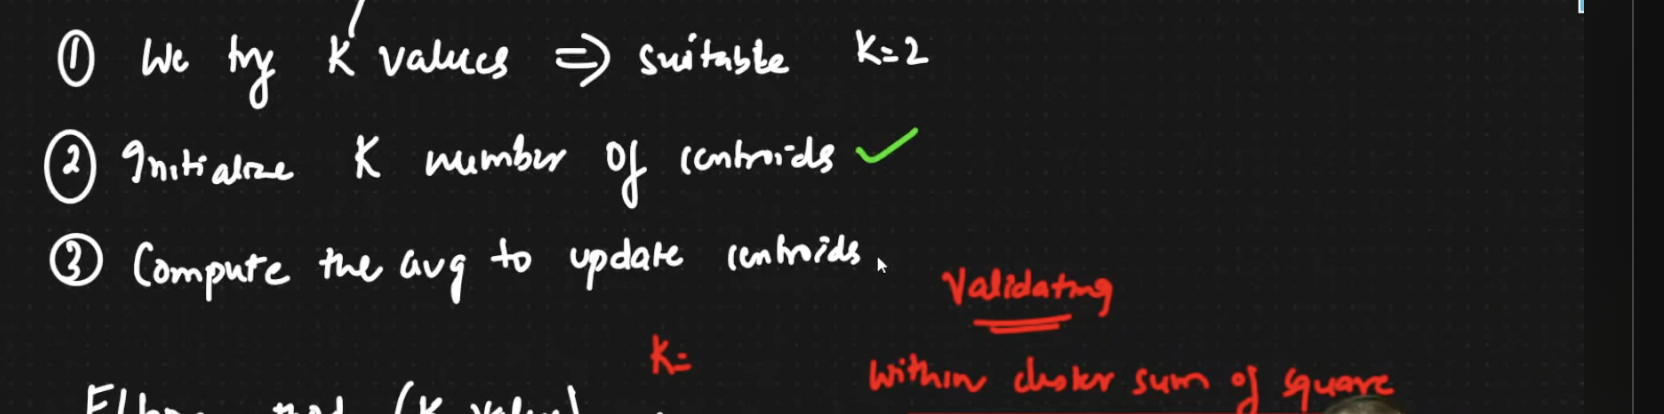 ① We try K values ⇒ suitable K=2
② Initialize K number of centroids ✓
③ Compute the avg to update centroids.
Validating
K=
Within cluster sum of square
(K value)